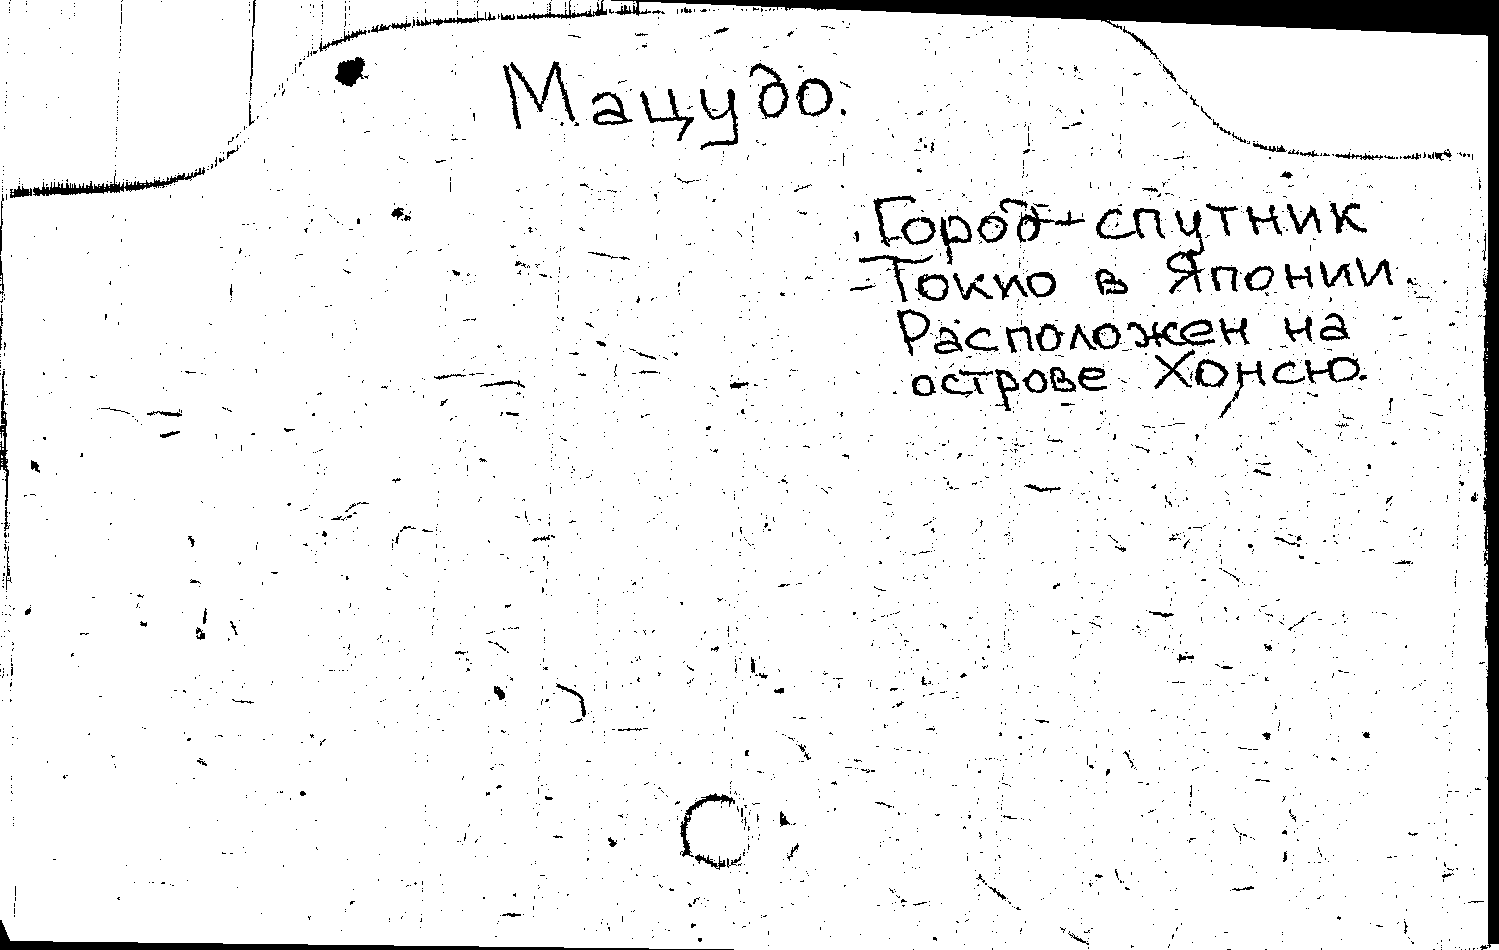 Мацудо.
Город-спутник
Токио в Японии.
Расположен на
острове Хонсю.